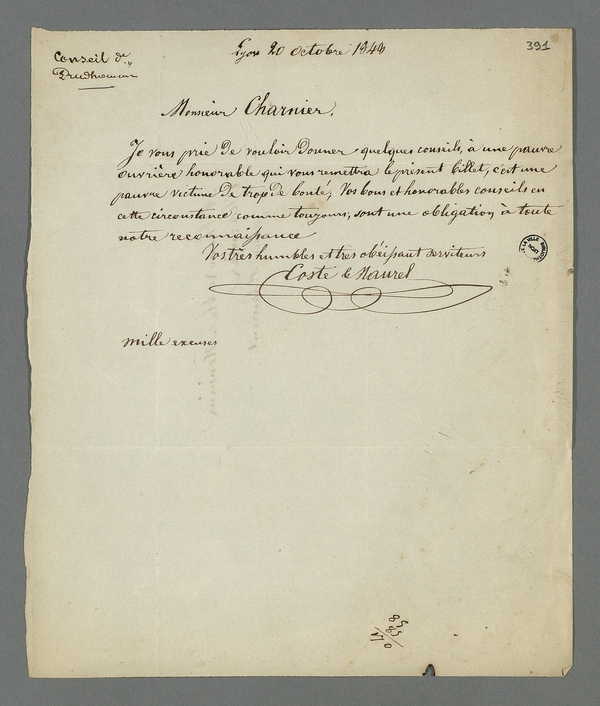 391
Conseil de
Prudhommes
Lyon 20 octobre 1844
Monsieur Charnier,
Je vous prie de vouloir donner quelques conseils, à une pauvre
ouvrière honorable qui vous remettra le présent billet, c'est une
pauvre victime de trop de bonté; Vos bons et honorables conseils en
cette circonstance comme toujours, sont une obligation à toute
notre reconnaissance
Vos très humbles et très obéissant serviteurs
Coste &
mille excuses
85
85
170